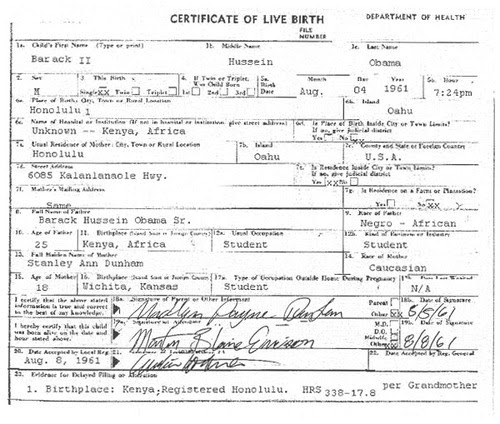 CERTIFICATE OF LIVE BIRTH DEPARTMENT OF HEALTH
FILE
NUMBER
1a. Child's First Name (Type or print) 1b. Middle Name 1c. Last Name
Barack II Hussein Obama
2. Sex 3. This Birth 4. If Twin or Triplet, Was Child Born 5a. Birth Date Month Day Year 5b. Hour
M Single XX Twin Triplet 1st 2nd 3rd Aug. 04 1961 7:24pm
6a. Place of Birth: City, Town or Rural Location 6b. Island
Honolulu 1 Oahu
6c. Name of Hospital or Institution (If not in hospital or institution, give street address) 6d. Is Place of Birth Inside City or Town Limits? If no, give judicial district
Unknown -- Kenya, Africa Yes No XX
7a. Usual Residence of Mother: City, Town or Rural Location 7b. Island 7c. County and State or Foreign Country
Honolulu Oahu U.S.A.
7d. Street Address 7e. Is Residence Inside City or Town Limits? If no, give judicial district
6085 Kalanianaole Hwy. Yes XX No
7f. Mother's Mailing Address 7g. Is Residence on a Farm or Plantation?
Same Yes No XX
8. Full Name of Father 9. Race of Father
Barack Hussein Obama Sr. Negro - African
10. Age of Father 11. Birthplace 12a. Usual Occupation 12b. Kind of Business or Industry
25 Kenya, Africa Student Student
13. Full Maiden Name of Mother 14. Race of Mother
Stanley Ann Dunham Caucasian
15. Age of Mother 16. Birthplace 17a. Type of Occupation Outside Home During Pregnancy 17b. Date Last Worked
18 Wichita, Kansas Student N/A
I certify that the above stated information is true and correct to the best of my knowledge. 18a. Signature of Parent or Other Informant Parent Other XX 18b. Date of Signature
Madelyn Payne Dunham 8/5/61
I hereby certify that this child was born alive on the date and hour stated above. 19a. Signature of Attendant M.D. D.O. Midwife Other 19b. Date of Signature
8/8/61
20. Date Accepted by Local Reg. 21. 22. Date Accepted by Reg. General
Aug. 8, 1961
23. Evidence for Delayed Filing or Alteration
1. Birthplace: Kenya, Registered Honolulu. HRS 338-17.8 per Grandmother